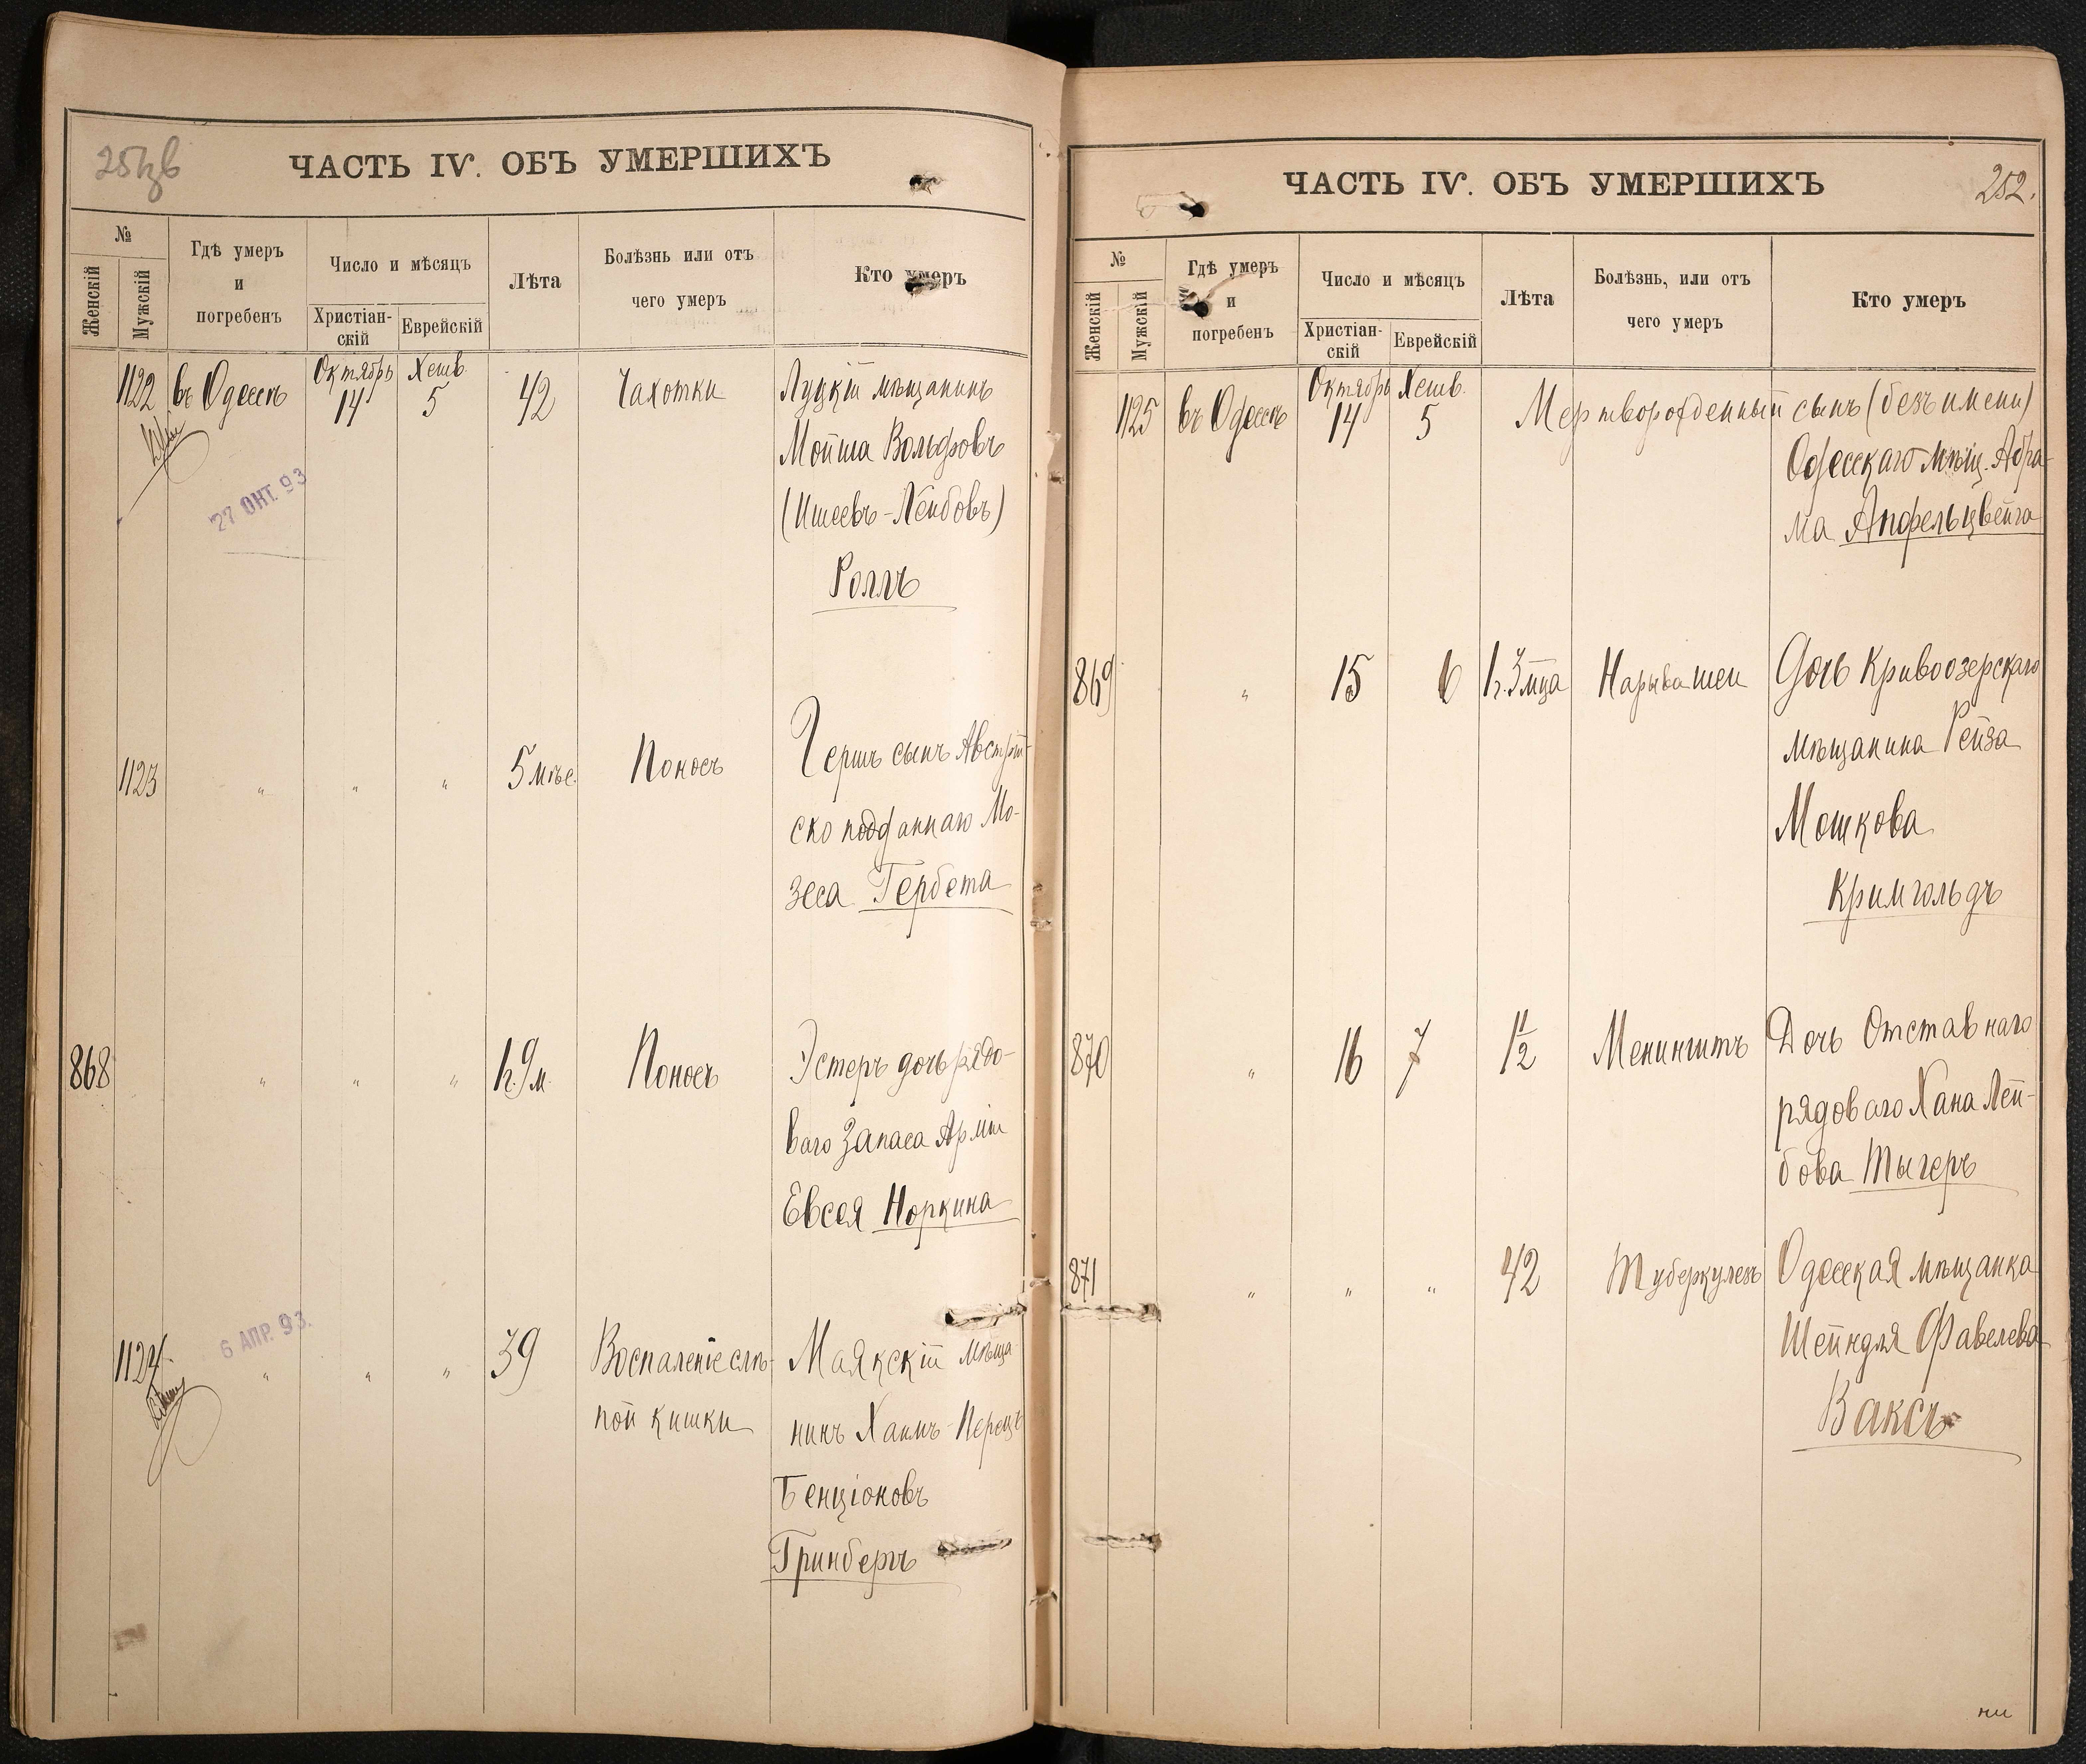 251зв
ЧАСТЬ IV. ОБЪ УМЕРШИХЪ
№
Женскій
Мужскій
Гдѣ умеръ
и
погребенъ
Число и мѣсяцъ
Христіан-
скій
Еврейскій
Лѣта
Болѣзнь или отъ
чего умеръ
Кто умеръ
1122 въ Одессѣ Октябрь 14 Хешв. 5 42 Чахотки Луцкій мѣщанинъ
Мойша Вольфовъ
27 ОКТ. 93
(Ишеевъ-Лейбовъ)
Роллъ
1123 " " " 5 мѣс. Поносъ Гершъ сынъ Австрій-
ско подданнаго Мо-
зеса Гербета
868 " " " 1 г. 9 м. Поносъ Эстеръ дочь рядо-
ваго Запаса Арміи
Евсея Норкина
6 АПР. 93.
1124 " " " 39 Воспаленіе слѣ- Маякскій мѣща
пой кишки нинъ Хаимъ-Перецъ
Бенціоновъ
Гринбергъ
ЧАСТЬ IV. ОБЪ УМЕРШИХЪ
252.
№
Женскій
Мужскій
Гдѣ умеръ
и
погребенъ
Число и мѣсяцъ
Христіан-
скій
Еврейскій
Лѣта
Болѣзнь, или отъ
чего умеръ
Кто умеръ
1125 въ Одессѣ Октябрь 14 Хешв. 5 Мертворожденный сынъ (безъ имени)
Одесскаго мѣщ. Абра-
ма Апфельцвейга
869 " 15 6 1 г. 3 мца Нарыва шеи Дочь Кривоозерскаго
мѣщанина Рейза
Мошкова
Кримгольдъ
870 " 16 7 1 1/2 Менингитъ Дочь Отставнаго
рядоваго Хана Лей-
бова Тыгеръ
871 " " " 42 Туберкулезъ Одесская мѣщанка
Шейндля Фавелева
Ваксъ
ни